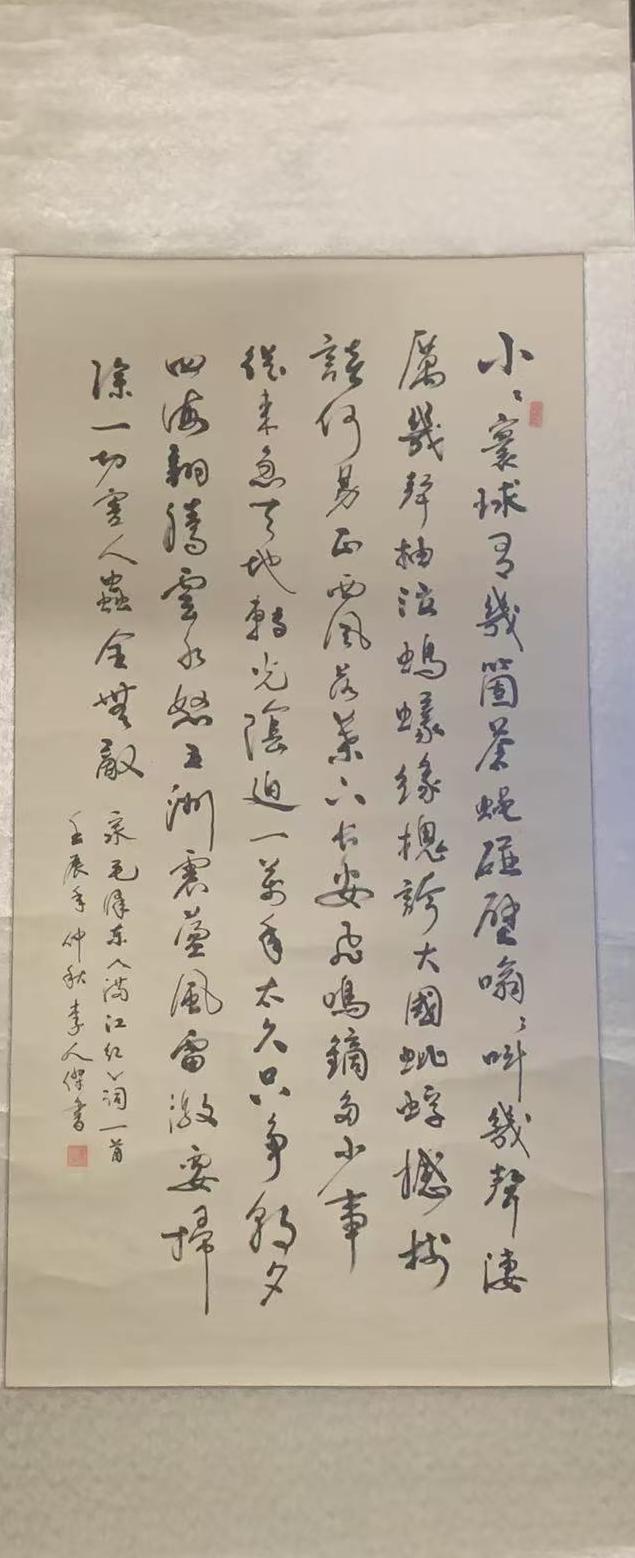 小〻寰球有幾箇蒼蠅碰壁嗡〻叫幾聲淒
厲幾聲抽泣螞蟻緣槐誇大國蚍蜉撼樹
談何易正西風落葉下長安飛鳴鏑多少事
從来急天地轉光陰迫一萬年太久只争朝夕
四海翻騰雲水怒五洲震盪風雷激要掃
除一切害人蟲全無敵
录毛澤东《满江红》词一首
壬辰年仲秋李人傑書